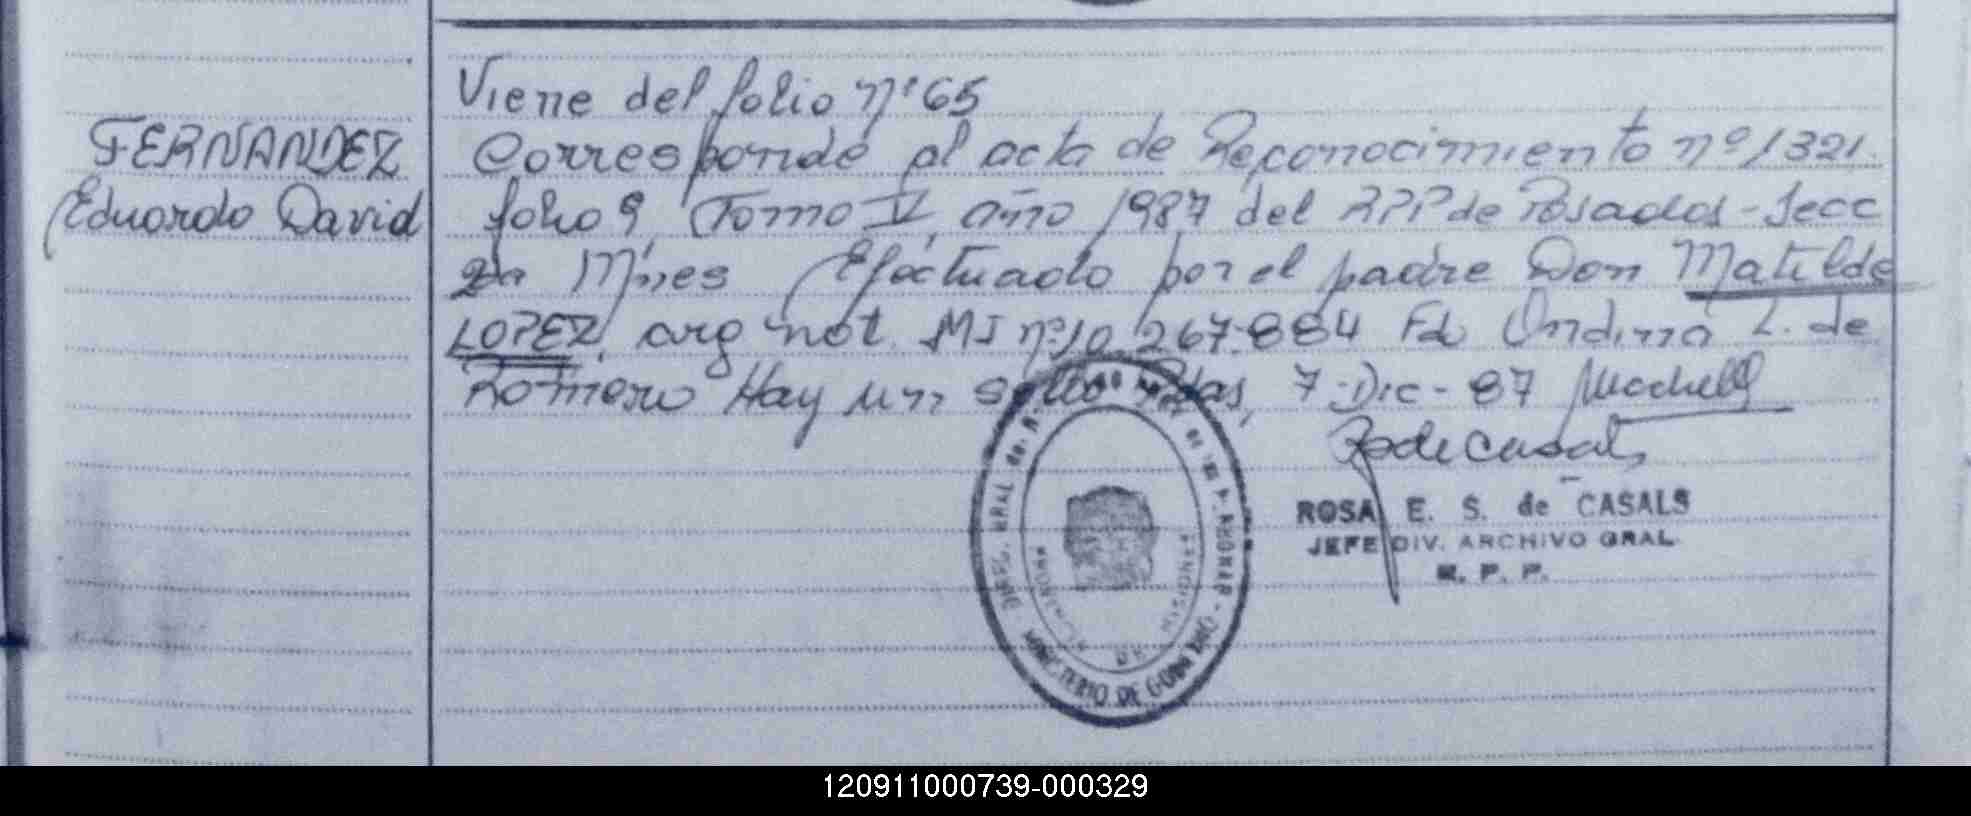 Viene del folio nº 65
FERNANDEZ
Eduardo David
Corresponde al acta de Reconocimiento nº 1321.
folio 9, Tomo V, año 1987 del RPP de Posadas - Secc
2da Mnes Efectuado por el padre Don Matilde
LOPEZ, arg nat. MI nº 10.267.884 Fdo Ondina L. de
Romero Hay un sello Pdas, 7-Dic-87
R de Casals
ROSA E. S. de CASALS
JEFE DIV. ARCHIVO GRAL
R. P. P.
MINISTERIO DE GOBIERNO
PROVINCIA DE MISIONES
120911000739-000329